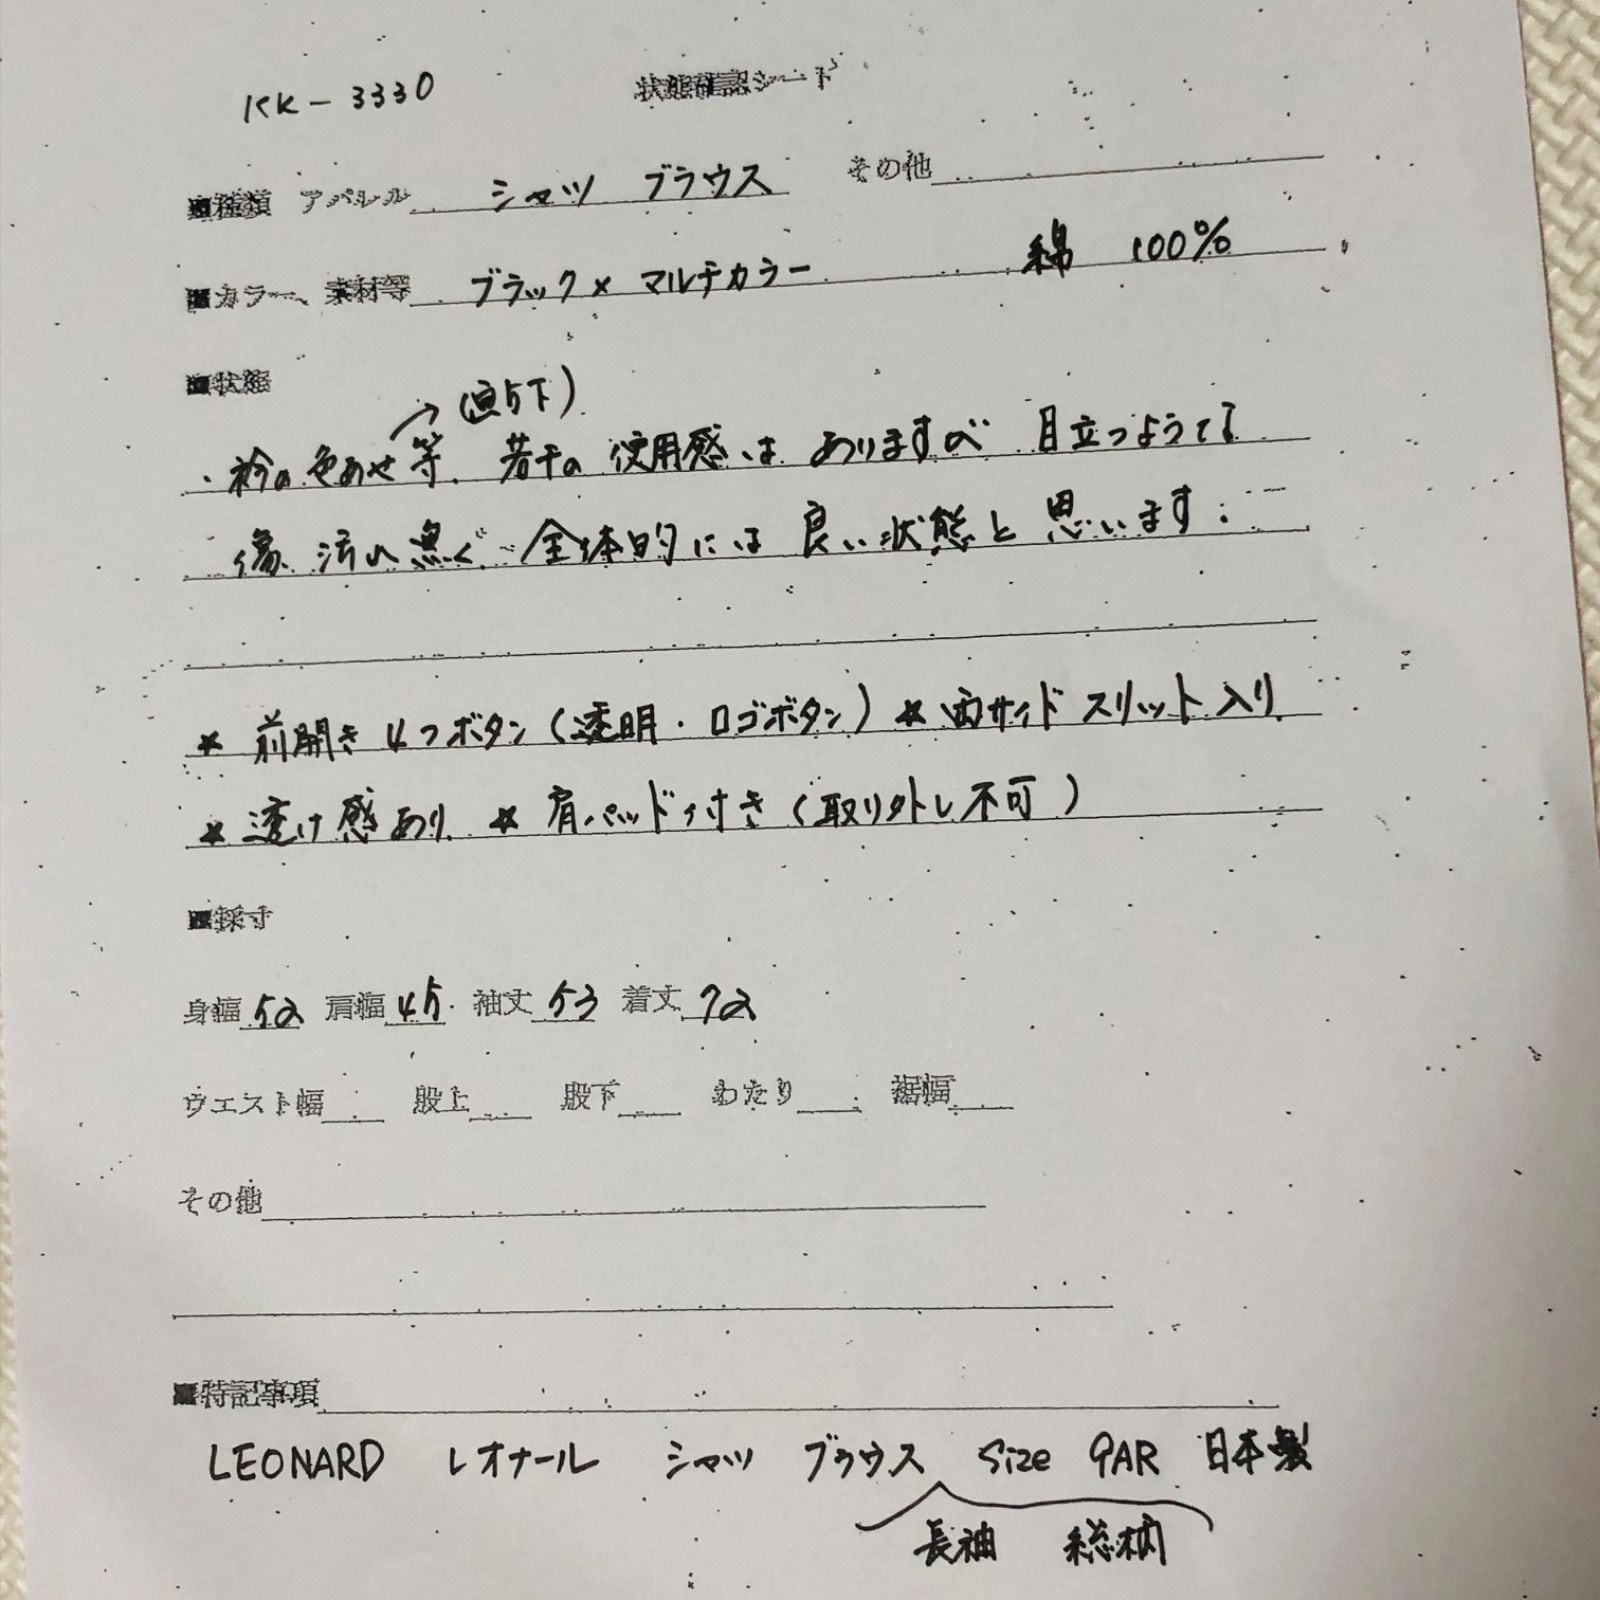 KK-3330 状態確認シート
■種類 アパレル シャツ ブラウス その他
■カラー、素材等 ブラック×マルチカラー 綿 100%
■状態
→(値下)
・衿の色あせ等、若干の使用感はありますが 目立つような
傷、汚れ無く 全体的には良い状態と思います。
* 前開き4つボタン(透明・ロゴボタン) * 両サイドスリット入り
* 透け感あり * 肩パッド付き(取り外し不可)
■採寸
身幅 52 肩幅 45 袖丈 53 着丈 72
ウエスト幅 股上 股下 わたり 裾幅
その他
■特記事項
LEONARD レオナール シャツ ブラウス size 9AR 日本製
長袖 総柄